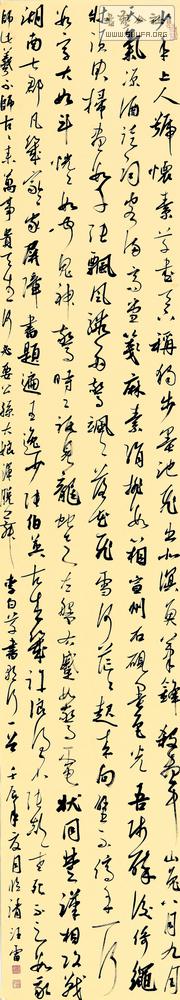 少年上人號懷素草書天下稱獨步墨池飛出北溟魚筆鋒殺盡中山兔八月九月
天氣涼酒徒詞客滿高堂箋麻素絹排數箱宣州石硯墨色光吾師醉後倚繩
床須臾掃盡數千張飄風驟雨驚颯颯落花飛雪何茫茫起來向壁不停手一行
數字大如斗恍恍如聞鬼神驚時時只見龍蛇走左盤右蹙如驚電狀同楚漢相攻戰
湖南七郡凡幾家家家屏障書題遍王逸少張伯英古來幾許浪得名張顛老死不足數我
師此義不師古古來萬事貴天生何必要公孫大娘渾脫舞 李白草書歌行一首 壬辰年夏月臨清汪雷